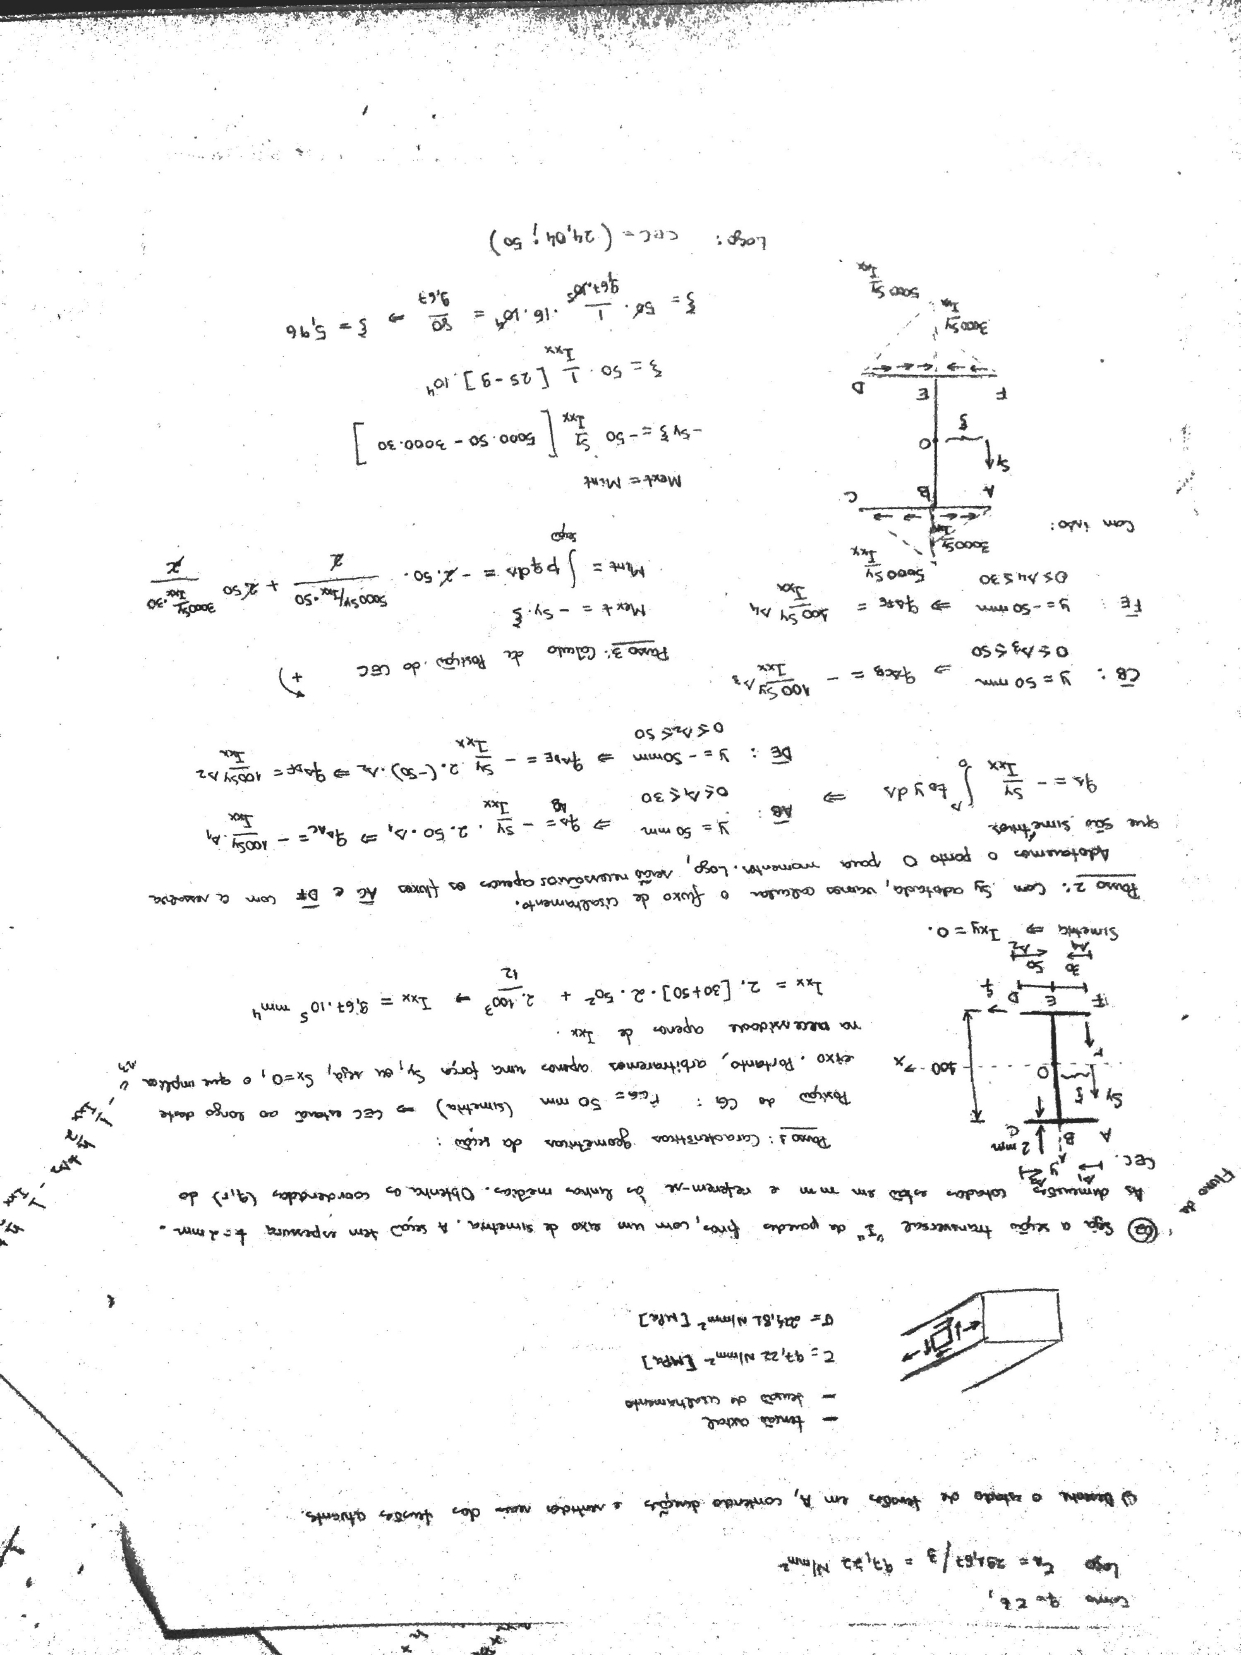 Como q = τt,
Logo τA = 291,67/3 = 97,22 N/mm²
c) Desenhe o estado de tensões em A, contendo direções e sentidos reais das tensões atuantes.
— tensão axial
— tensão de cisalhamento
τ = 97,22 N/mm² [MPa]
σ = 224,81 N/mm² [MPa]
Fluxo de
02 Seja a seção transversal "I" de paredes finas, com um eixo de simetria. A seção tem espessura t = 2 mm.
As dimensões cotadas estão em mm e referem-se às linhas médias. Obtenha as coordenadas (q,r) do
CEC.
y
2 mm
A B C
Sy ξ
O
100
x
r
F E D q
30 50
s1 s2
Simetria ⇒ Ixy = 0.
Passo 1: Características geométricas da seção:
Posição do CG: rCG = 50 mm (simetria) ⇒ CEC estará ao longo deste
eixo. Portanto, arbitraremos apenas uma força Sy, ou seja, Sx=0, o que implica
na necessidade apenas de Ixx.
Ixx = 2. [30+50] . 2 . 50² + 2.100³/12 → Ixx = 9,67.10⁵ mm⁴
Passo 2: Com Sy adotada, vamos calcular o fluxo de cisalhamento.
Adotaremos o ponto O para momentos. Logo, serão necessários apenas os fluxos AC e DF com a ressalva
que são simétricos
qs = - Sy/Ixx ∫₀ˢ tD y ds ⇒
AB: y = 50 mm ⇒ qsAB = - Sy/Ixx . 2.50.s1 ⇒ qsAC = - 100Sy/Ixx . s1
0 ≤ s1 ≤ 30
DE: y = -50mm ⇒ qsDE = - Sy/Ixx 2.(-50).s2 ⇒ qsDF = 100Sy/Ixx s2
0 ≤ s2 ≤ 50
CB: y = 50 mm ⇒ qsCB = - 100Sy/Ixx s3
0 ≤ s3 ≤ 50
FE: y = -50 mm ⇒ qsFE = 100Sy/Ixx s4
0 ≤ s4 ≤ 30
Com isso:
3000Sy/Ixx
5000Sy/Ixx
A B C
Sy
O
ξ
F E D
3000Sy/Ixx
5000Sy/Ixx
Passo 3: Cálculo da Posição do CEC +
Mext = - Sy.ξ
Mint = ∫seção pqds = -2.50. 5000Sy/Ixx.50/2 + 2.50 3000Sy/Ixx.30/2
Mext = Mint
-Syξ = -50 Sy/Ixx [5000.50 - 3000.30]
ξ = 50 . 1/Ixx [25-9].10⁴
ξ = 50. 1/9,67.10⁵ .16.10⁴ = 80/9,67 ⇒ ξ = 5,96
Logo: CEC = (24,04; 50)